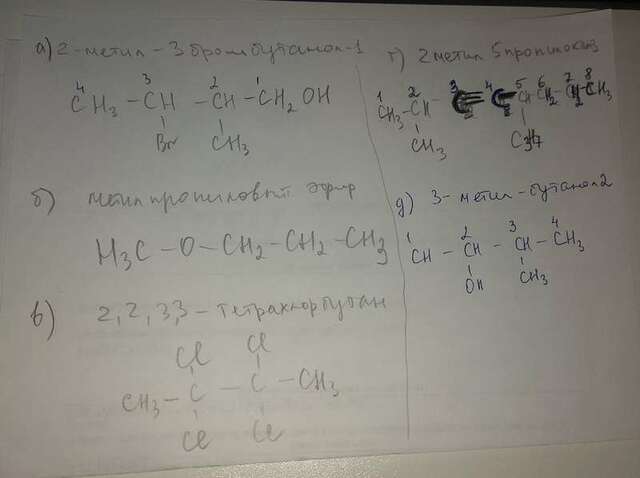 а) 2-метил-3бромбутанол-1
4 3 2 1
CH3 - CH - CH - CH2OH
Br CH3
б) метилпропиловый эфир
H3C - O - CH2 - CH2 - CH3
в) 2,2,3,3-тетрахлорбутан
Cl Cl
CH3 - C - C - CH3
Cl Cl
г) 2метил 5пропилокт
1 2 3 4 5 6 7 8
CH3 - CH C C CH CH2 CH2 CH3
CH3 C3H7
д) 3-метил-бутанол2
1 2 3 4
CH - CH - CH - CH3
OH CH3